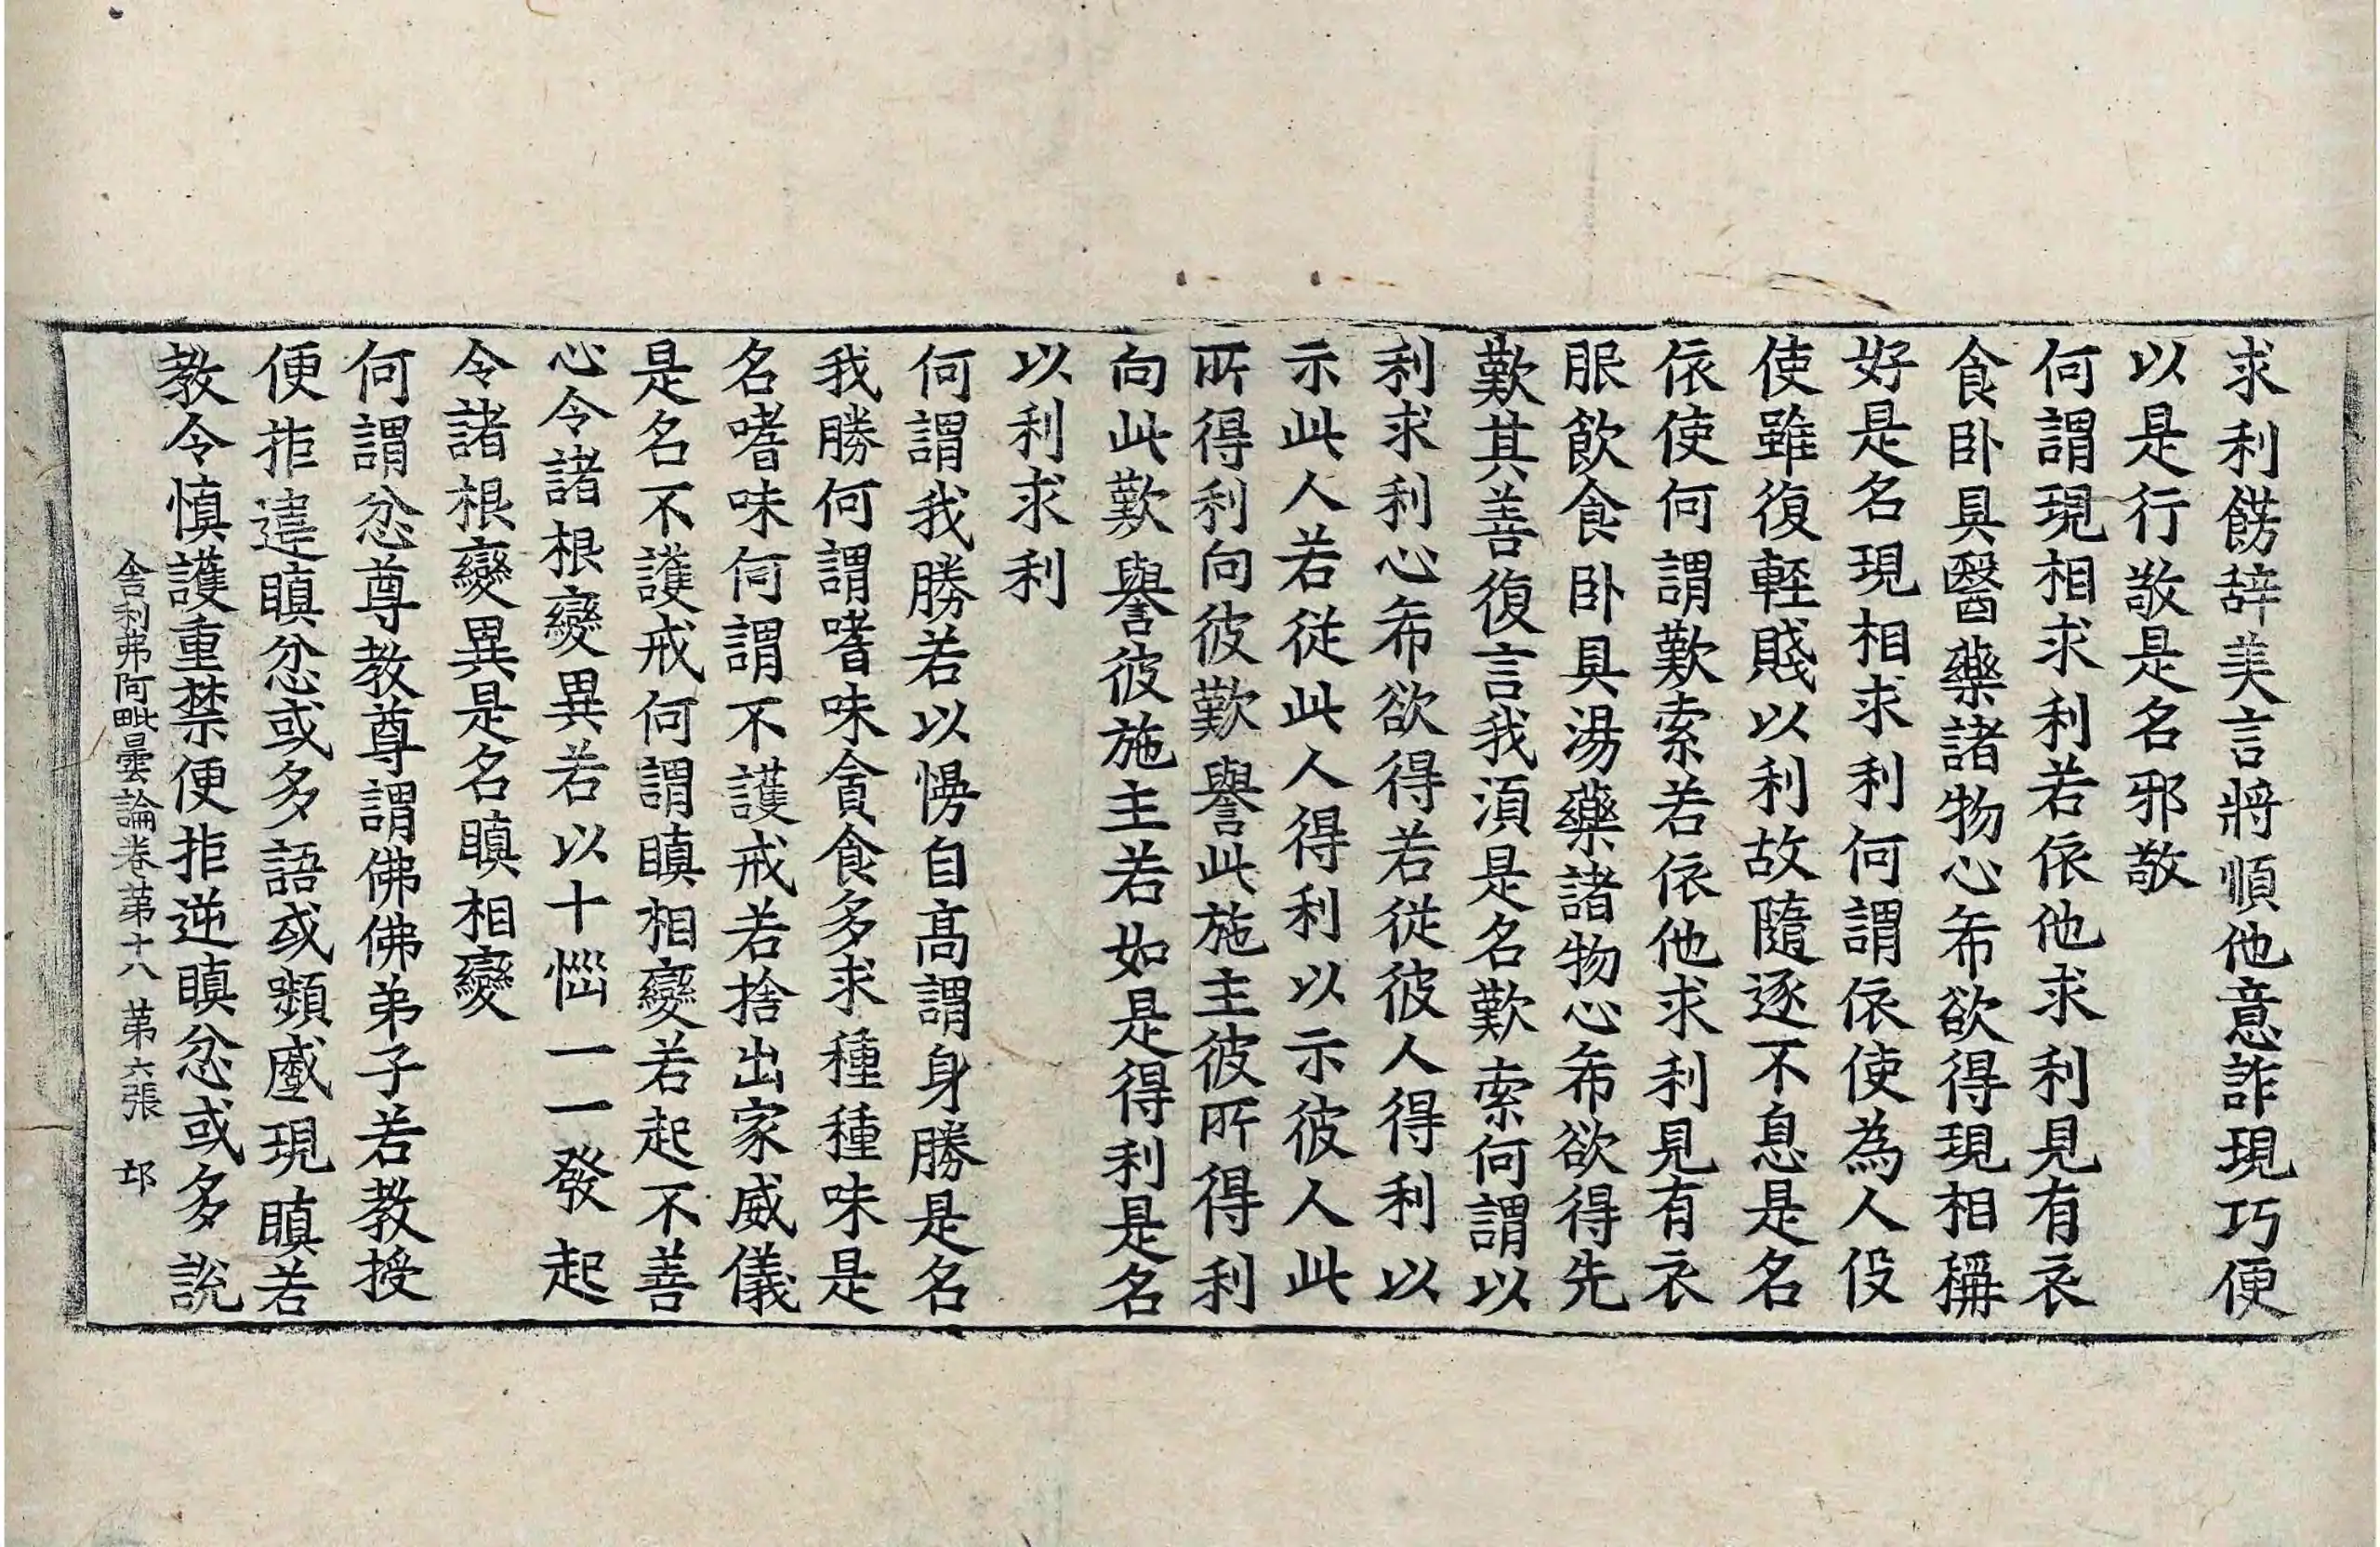 求利餝辞美言將順他意詐現巧便
以是行敬是名邪敬
何謂現相求利若依他求利見有衣
食卧具醫藥諸物心希欲得現相稱
好是名現相求利何謂依使為人伇
使雖復輕賤以利故隨逐不息是名
依使何謂歎索若依他求利見有衣
服飲食卧具湯藥諸物心希欲得先
歎其善復言我湏是名歎索何謂以
利求利心希欲得若從彼人得利以
示此人若從此人得利以示彼人此
所得利向彼歎譽此施主彼所得利
向此歎譽彼施主若如是得利是名
以利求利
何謂我勝若以慢自高謂身勝是名
我勝何謂嗜味貪食多求種種味是
名嗜味何謂不護戒若捨出家威儀
是名不護戒何謂瞋相變若起不善
心令諸根變異若以十惱一一發起
令諸根變異是名瞋相變
何謂忿尊教尊謂佛佛弟子若教授
便拒違瞋忿或多語或顰慼現瞋若
教令慎護重禁便拒逆瞋忿或多說
舍利弗阿毗曇論卷苐十八 苐六張 邙